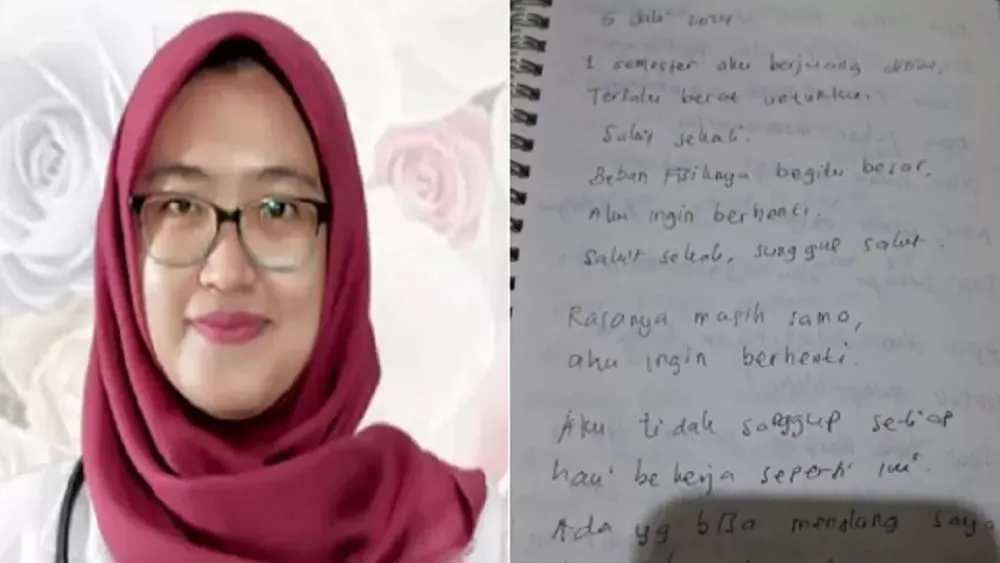 5 Juli 2024
1 semester aku berjuang disini.
Terlalu berat untukku.
Sakit sekali.
Beban fisiknya begitu besar.
Aku ingin berhenti.
Sakit sekali, sungguh sakit.
Rasanya masih sama,
aku ingin berhenti.
Aku tidak sanggup setiap
hari bekerja seperti ini.
Ada yg bisa menolong saya